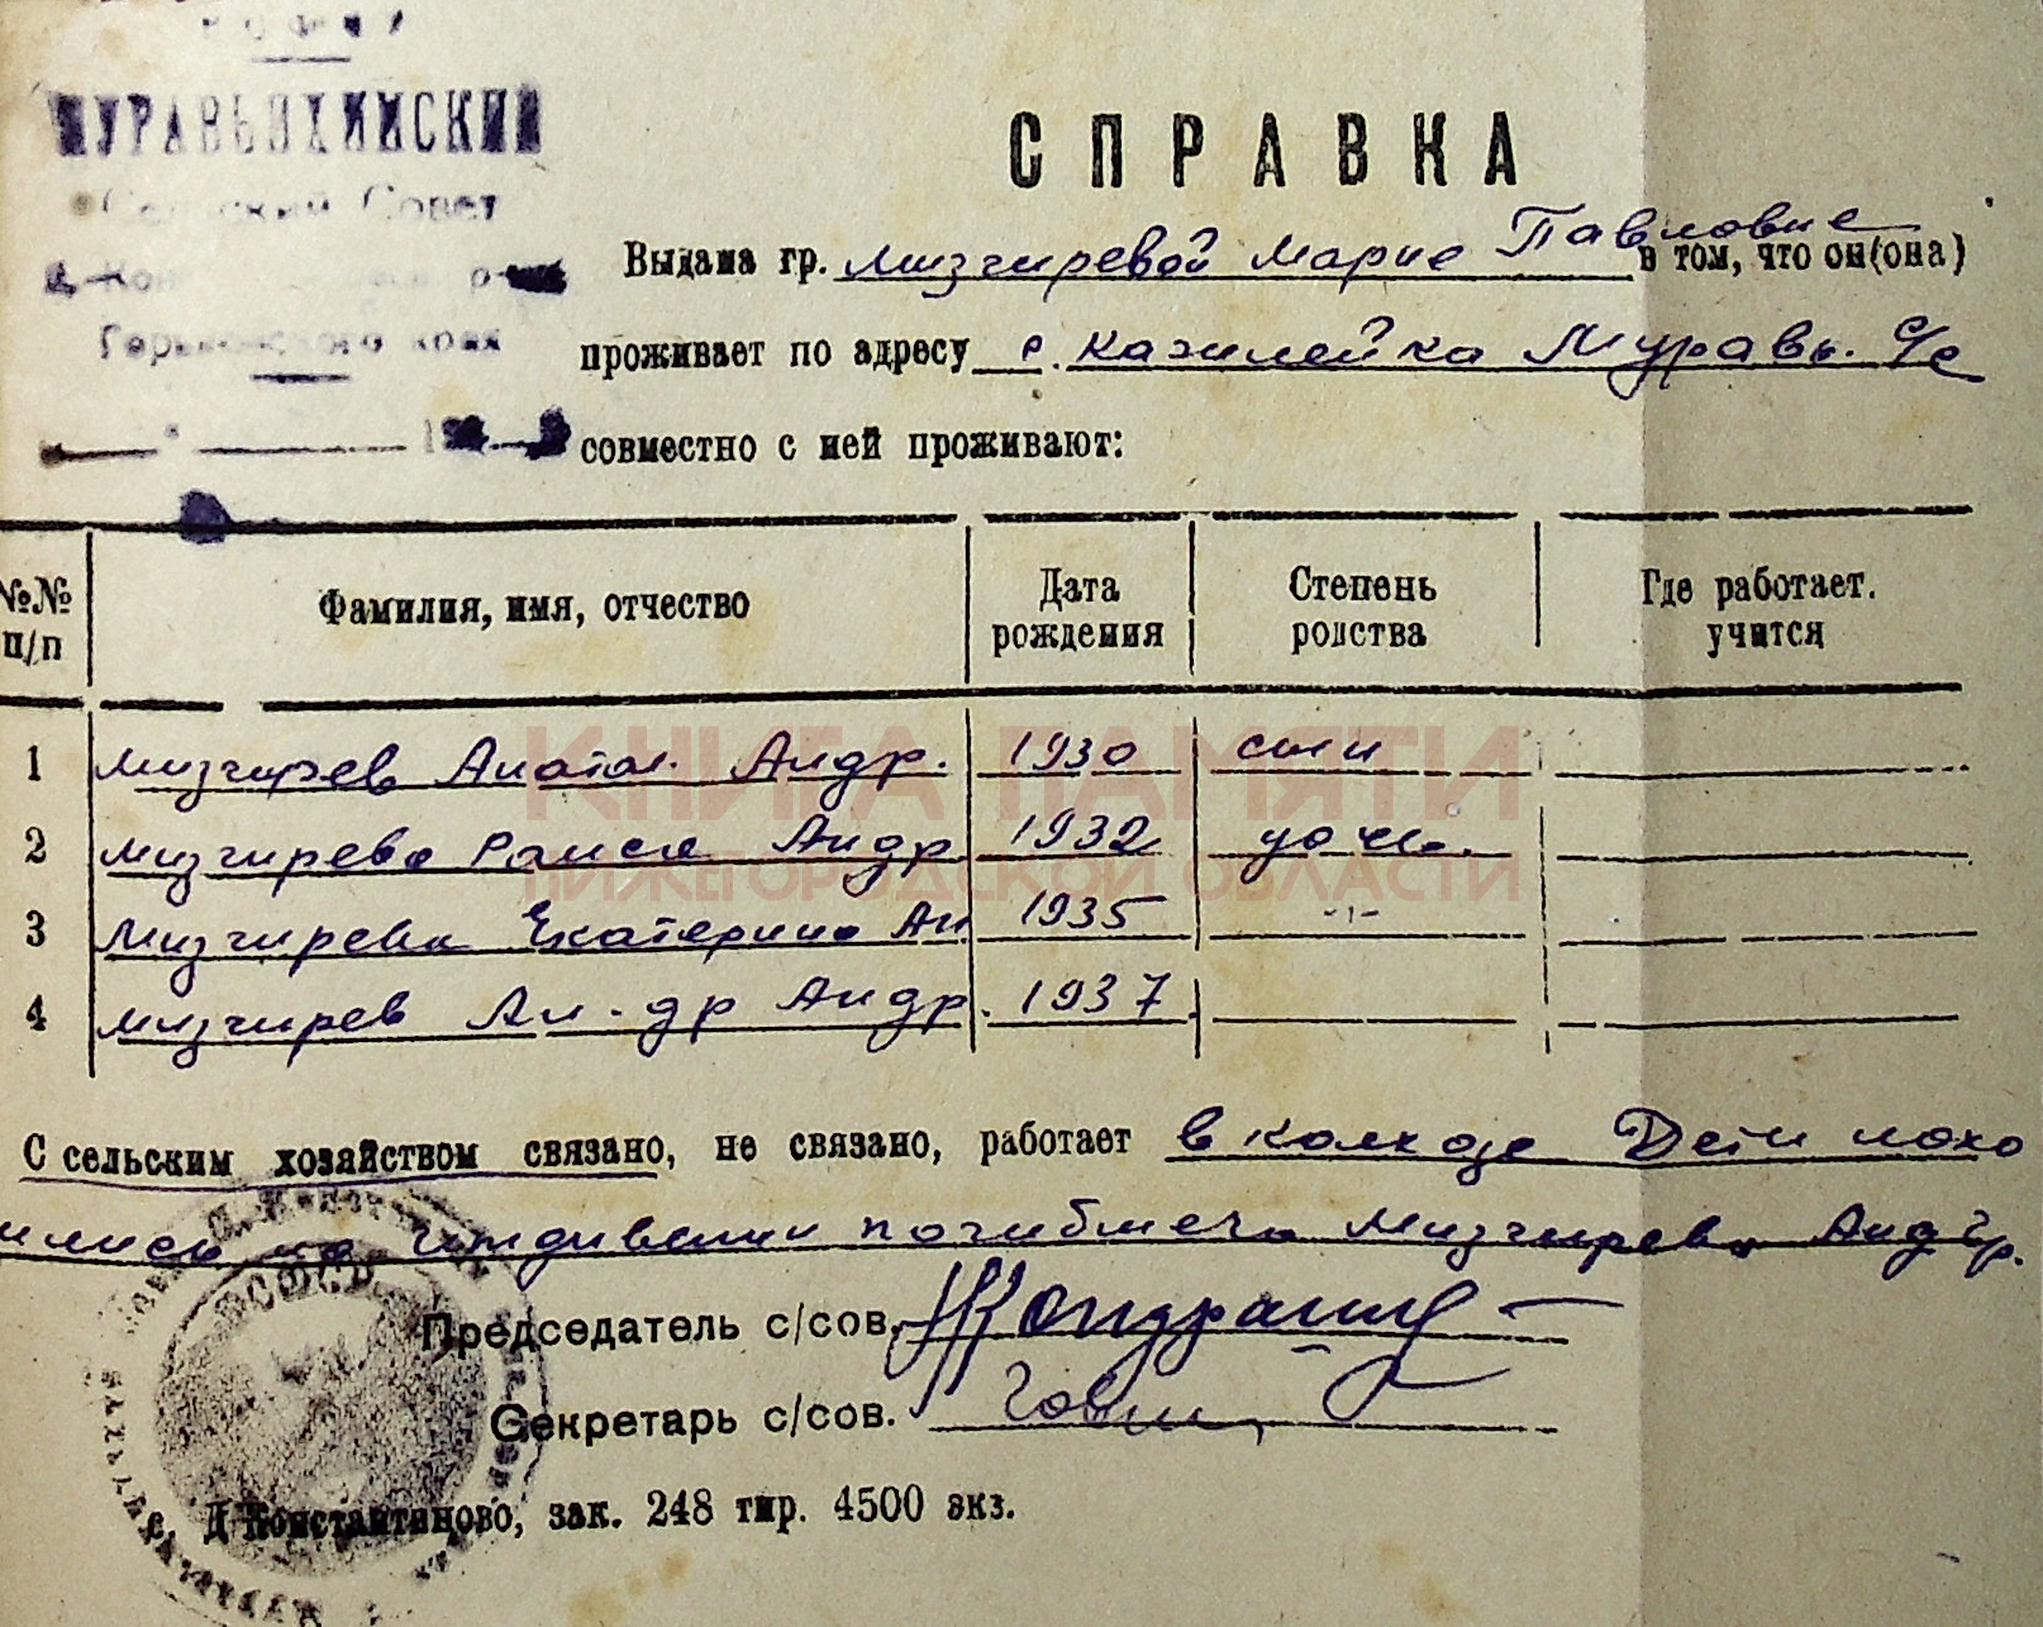 РСФСР
МУРАВЬИХИНСКИЙ
Сельский Совет
Горьковского края
СПРАВКА
Выдана гр. Мизгиревой Марие Павловне в том, что он(она)
проживает по адресу с. Кажлейка Муравь. с/с
совместно с ней проживают:
№№ п/п Фамилия, имя, отчество Дата рождения Степень родства Где работает. учится
1 Мизгирев Анатол. Андр. 1930 сын
2 Мизгирева Раиса Андр 1932 дочь.
3 Мизгирева Екатерина Ан 1935 -"-
4 Мизгирев Ал-др Андр. 1937
КНИГА ПАМЯТИ
НИЖЕГОРОДСКОЙ ОБЛАСТИ
С сельским хозяйством связано, не связано, работает в колхозе Дети нахо
ились на иждивении погибшего Мизгирева Андр.
РСФСР
Председатель с/сов.
Секретарь с/сов.
с. Д Константиново, зак. 248 тир. 4500 экз.